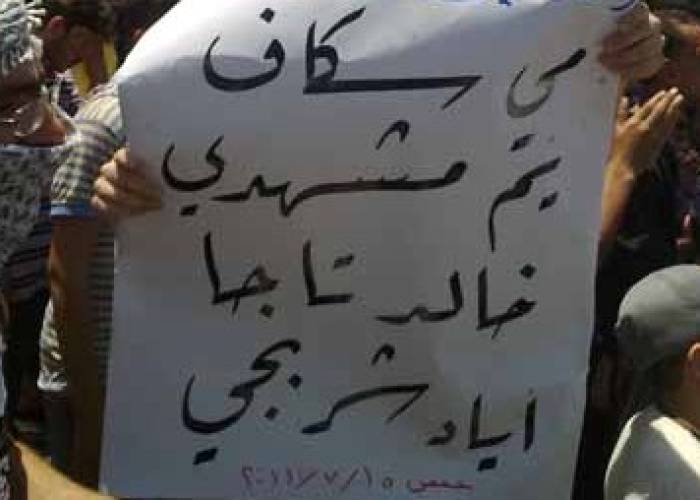 مي سكاف
يم مشهدي
خالد تاجا
أياد شربجي
حمص ٢٠١١/٧/١٥